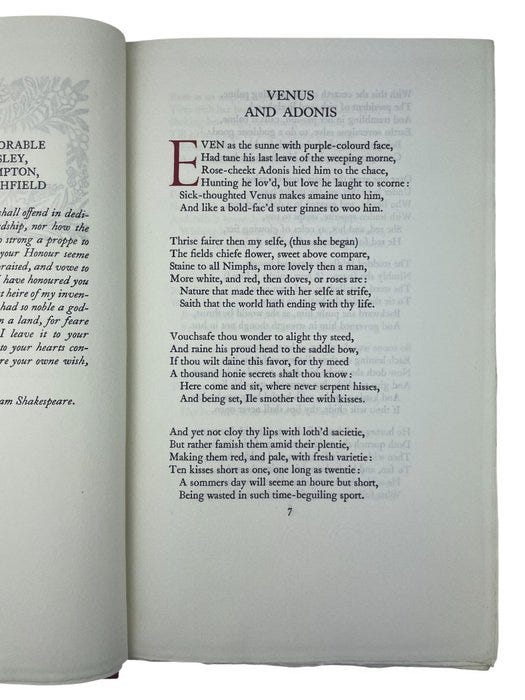 ORABLE
SLEY,
MPTON,
HFIELD
hall offend in dedi-
rdship, nor how the
o strong a proppe to
your Honour seeme
praised, and vowe to
I have honoured you
t heire of my inven-
had so noble a god-
n a land, for feare
I leave it to your
to your hearts con-
ere your owne wish,
am Shakespeare.
VENUS
AND ADONIS
EVEN as the sunne with purple-colourd face,
Had tane his last leave of the weeping morne,
Rose-cheekt Adonis hied him to the chace,
Hunting he lov'd, but love he laught to scorne:
Sick-thoughted Venus makes amaine unto him,
And like a bold-fac'd suter ginnes to woo him.
Thrise fairer then my selfe, (thus she began)
The fields chiefe flower, sweet above compare,
Staine to all Nimphs, more lovely then a man,
More white, and red, then doves, or roses are:
Nature that made thee with her selfe at strife,
Saith that the world hath ending with thy life.
Vouchsafe thou wonder to alight thy steed,
And raine his proud head to the saddle bow,
If thou wilt daine this favor, for thy meed
A thousand honie secrets shalt thou know:
Here come and sit, where never serpent hisses,
And being set, Ile smother thee with kisses.
And yet not cloy thy lips with loth'd sacietie,
But rather famish them amid their plentie,
Making them red, and pale, with fresh varietie:
Ten kisses short as one, one long as twentie:
A sommers day will seeme an houre but short,
Being wasted in such time-beguiling sport.
7